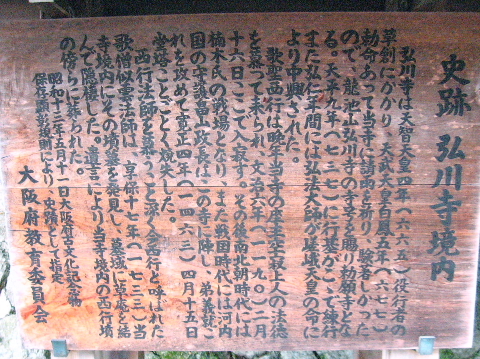 史跡 弘川寺境内
弘川寺は天智天皇四年（六六五）役行者の
草創にかかり、天武天皇白鳳五年（六七七）
勅命あって当寺に請雨を祈り、験著しかった
ので、龍池山弘川寺の寺号を賜り勅願寺とな
る。天平九年（七三七）に行基がここで練行
また弘仁年間には弘法大師が嵯峨天皇の命に
より中興された。
歌聖西行は晩年当寺の座主空寂上人の法徳
を慕って来られ、文治六年（一一九〇）二月
十六日ここで入寂す。その後南北朝時代には
楠木氏の戦場となり、また戦国時代には河内
国の守護畠山政長はこの寺に陣し、弟義就こ
れを攻めて寛正四年（一四六三）四月十五日
堂塔ことごとく焼失した。
西行法師を慕うこと深く今西行と呼ばれた
歌僧似雲法師は、享保十七年（一七三三）当
寺境内にその墳墓を発見し、墓域に草庵を結
んで隠棲した。遺言により当寺境内の西行墳
の傍らに葬られた。
昭和十三年五月十一日大阪府古文化記念物
保存顕彰規則により、史蹟として指定
大阪府教育委員会